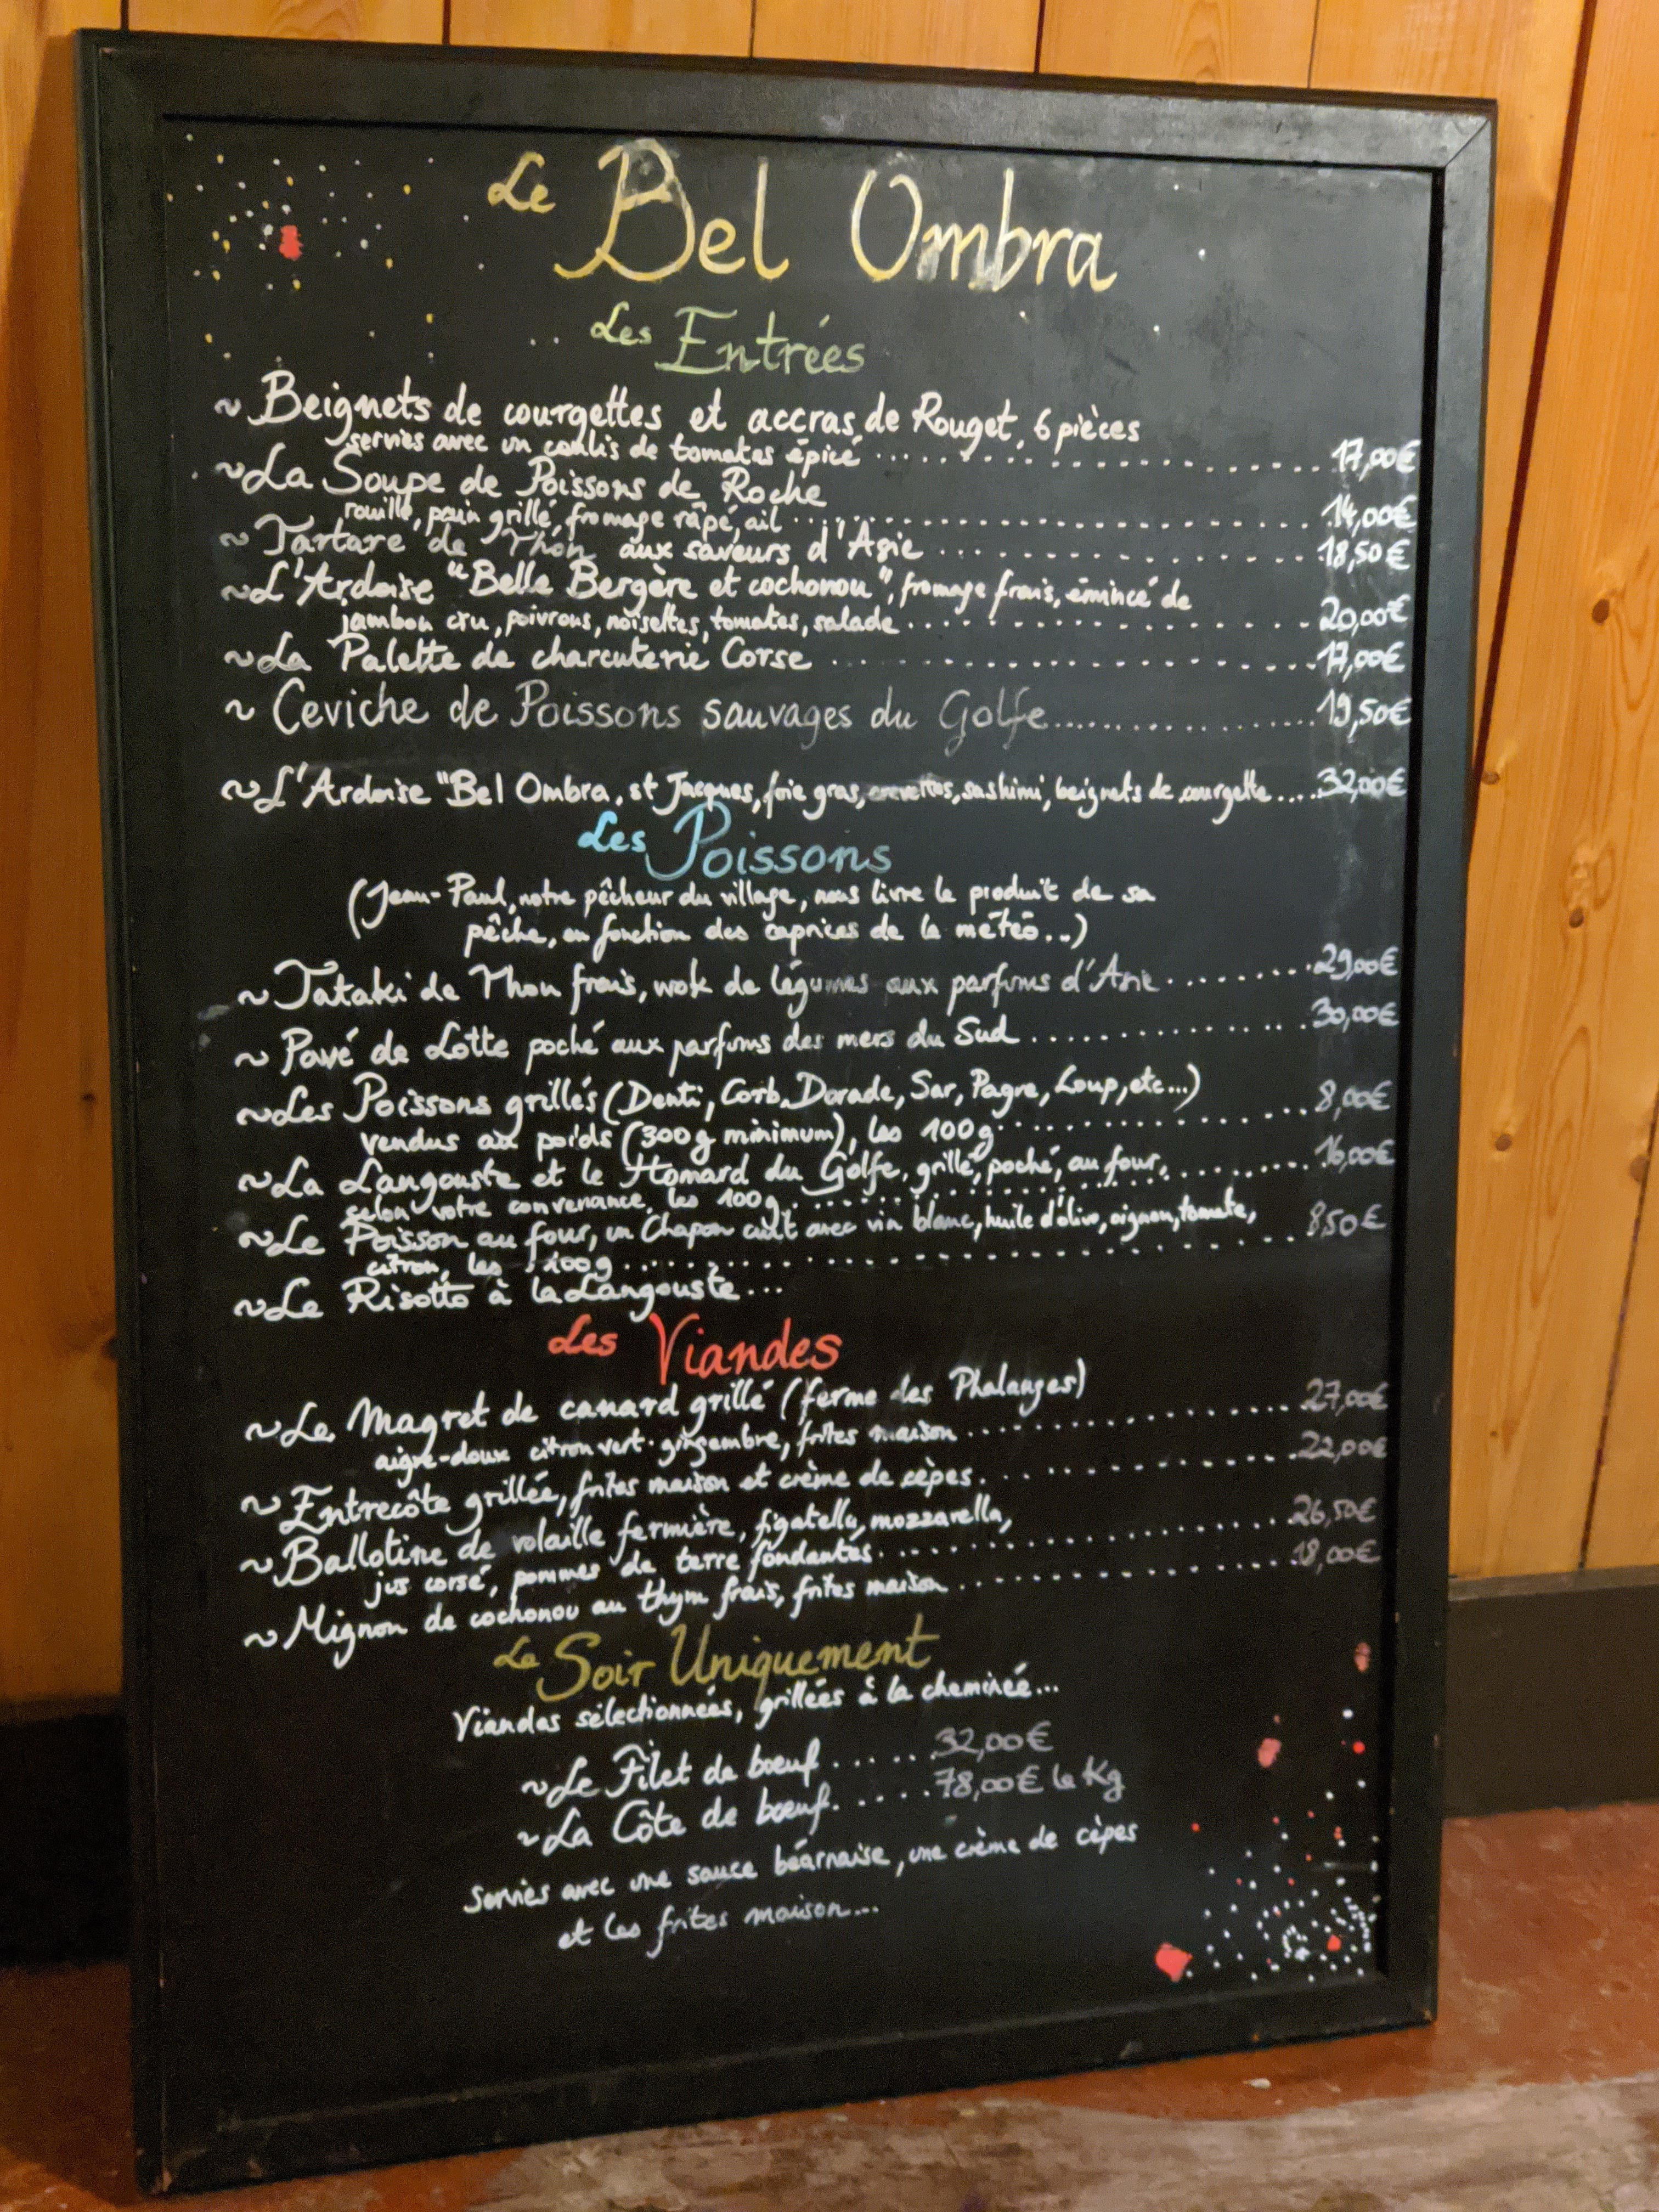 Le Bel Ombra
Les Entrées
~ Beignets de courgettes et accras de Rouget, 6 pièces
servies avec un coulis de tomates épicé ..... 17,00€
~ La Soupe de Poissons de Roche
rouille, pain grillé, fromage râpé, ail ..... 14,00€
~ Tartare de Thon aux saveurs d'Asie ..... 18,50€
~ L'Ardoise "Belle Bergère et cochonou", fromage frais, émincé de
jambon cru, poivrons, noisettes, tomates, salade ..... 20,00€
~ La Palette de charcuterie Corse ..... 17,00€
~ Ceviche de Poissons sauvages du Golfe ..... 19,50€
~ L'Ardoise "Bel Ombra, st Jacques, foie gras, crevettes, sashimi, beignets de courgette .... 32,00€
Les Poissons
(Jean-Paul, notre pêcheur du village, nous livre le produit de sa
pêche, en fonction des caprices de la météo...)
~ Tataki de Thon frais, wok de légumes aux parfums d'Asie ..... 29,00€
~ Pavé de Lotte poché aux parfums des mers du Sud ..... 30,00€
~ Les Poissons grillés (Denti, Corb, Dorade, Sar, Pagre, Loup, etc...)
vendus au poids (300g minimum), les 100g ..... 8,00€
~ La Langouste et le Homard du Golfe, grillé, poché, au four, ..... 16,00€
selon votre convenance, les 100g .....
~ Le Poisson au four, un Chapon cuit avec vin blanc, huile d'olive, oignon, tomate,
citron, les 100g ..... 8,50€
~ Le Risotto à la Langouste...
Les Viandes
~ Le Magret de canard grillé (ferme des Phalanges)
aigre-doux citron vert-gingembre, frites maison ..... 27,00€
~ Entrecôte grillée, frites maison et crème de cèpes ..... 22,00€
~ Ballotine de volaille fermière, figatellu, mozzarella,
jus corsé, pommes de terre fondantes ..... 26,50€
~ Mignon de cochonou au thym frais, frites maison ..... 18,00€
Le Soir Uniquement
Viandes sélectionnées, grillées à la cheminée...
~ Le Filet de bœuf ..... 32,00€
~ La Côte de bœuf ..... 78,00€ le Kg
Servies avec une sauce béarnaise, une crème de cèpes
et les frites maison...